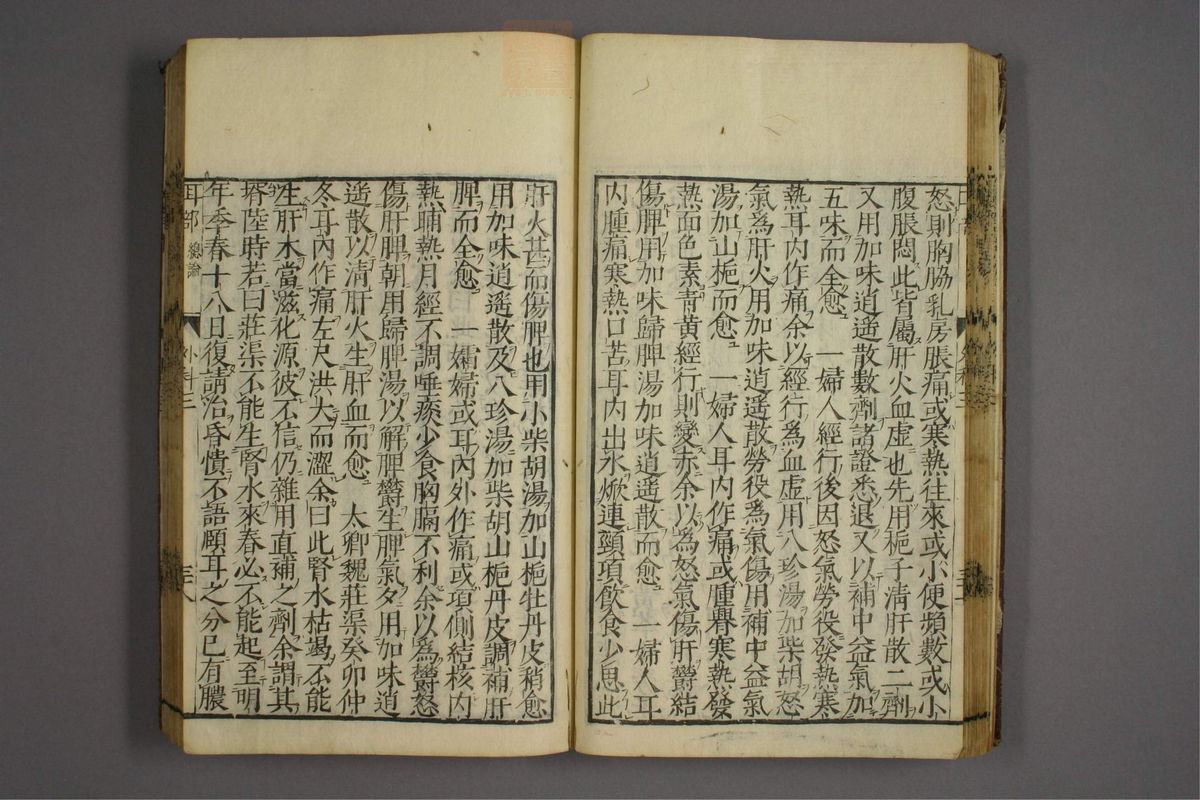 怒則胸脇乳房脹痛或寒熱往來或小便頻數或小
腹脹悶此皆屬肝火血虛也先用梔子清肝散二劑
又用加味逍遙散數劑諸證悉退又以補中益氣加
五味而全愈　一婦人經行後因怒氣勞役發熱寒
熱耳内作痛余以經行爲血虛用八珍湯加柴胡怒
氣爲肝火用加味逍遙散勞役爲氣傷用補中益氣
湯加山梔而愈　一婦人耳内作痛或腫釁寒熱發
熱面色素青黄經行則變赤余以爲怒氣傷肝欝結
傷脾用加味歸脾湯加味逍遙散而愈　一婦人耳
内腫痛寒熱口苦耳内出水焮連頸項飲食少思此
肝火甚而傷脾也用小柴胡湯加山梔牡丹皮稍愈
用加味逍遙散及八珍湯加柴胡山梔丹皮調補肝
脾而全愈　一孀婦或耳内外作痛或項側結核内
熱晡熱月經不調唾痰少食胸膈不利余以爲欝怒
傷肝脾朝用歸脾湯以解脾欝生脾氣夕用加味逍
遙散以清肝火生肝血而愈　太卿魏莊渠癸卯仲
冬耳内作痛左尺洪大而澀余曰此腎水枯竭不能
生肝木當滋化源彼不信仍雜用直補之劑余謂其
壻陸時若曰莊渠不能生腎水來春必不能起至明
年季春十八日復請治昏憒不語頥耳之分已有膿
耳部　總論　外科三　三八